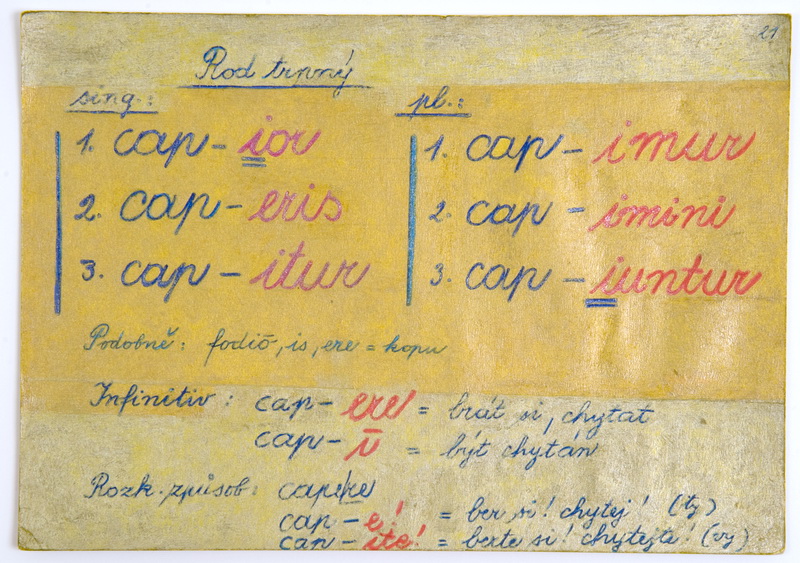 21
Rod trpný
sing.: pl.:
1. cap-ior 1. cap-imur
2. cap-eris 2. cap-imini
3. cap-itur 3. cap-iuntur
Podobně: fodiō, is, ere = kopu
Infinitiv: cap-ere = brát si, chytat
cap-ī = být chytán
Rozk. způsob: cape/re
cap-e! = ber si! chytej! (ty)
cap-ite! = berte si! chytejte! (vy)